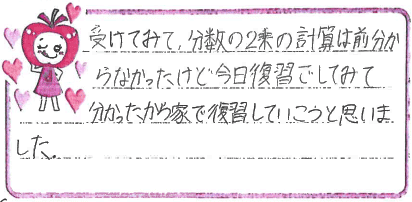 受けてみて、分数の2乗の計算は前分か
らなかったけど今日復習でしてみて
分かったから家で復習していこうと思いま
した。